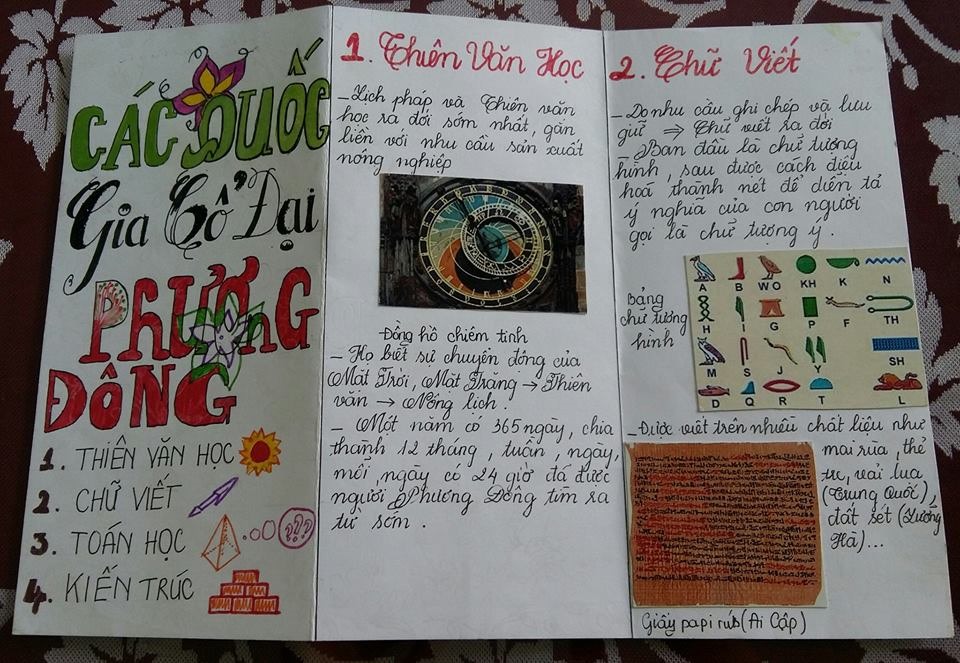 CÁC QUỐC
Gia Cổ Đại
PHƯƠNG
ĐÔNG
1. THIÊN VĂN HỌC
2. CHỮ VIẾT
3. TOÁN HỌC
???
4. KIẾN TRÚC
1. Thiên Văn Học
– Lịch pháp và Thiên văn
học ra đời sớm nhất, gắn
liền với nhu cầu sản xuất
nông nghiệp
Đồng hồ chiêm tinh
– Họ biết sự chuyện động của
Mặt Trời, Mặt Trăng → Thiên
văn → Nông lịch.
– Một năm có 365 ngày, chia
thành 12 tháng, tuần, ngày,
mỗi ngày có 24 giờ đã được
người Phương Đông tìm ra
từ sớm.
2. Chữ Viết
– Do nhu cầu ghi chép và lưu
giữ ⇒ Chữ viết ra đời
– Ban đầu là chữ tượng
hình, sau được cách điệu
hoá thành nét để diễn tả
ý nghĩa của con người
gọi là chữ tượng ý.
Bảng
chữ tượng
hình
A B WO KH K N
H I G P F TH
M S J Y SH
D Q R T L
– Được viết trên nhiều chất liệu như
mai rùa, thẻ
tre, vải lụa
(Trung Quốc),
đất sét (Lưỡng
Hà)...
Giấy papi rút (Ai Cập)